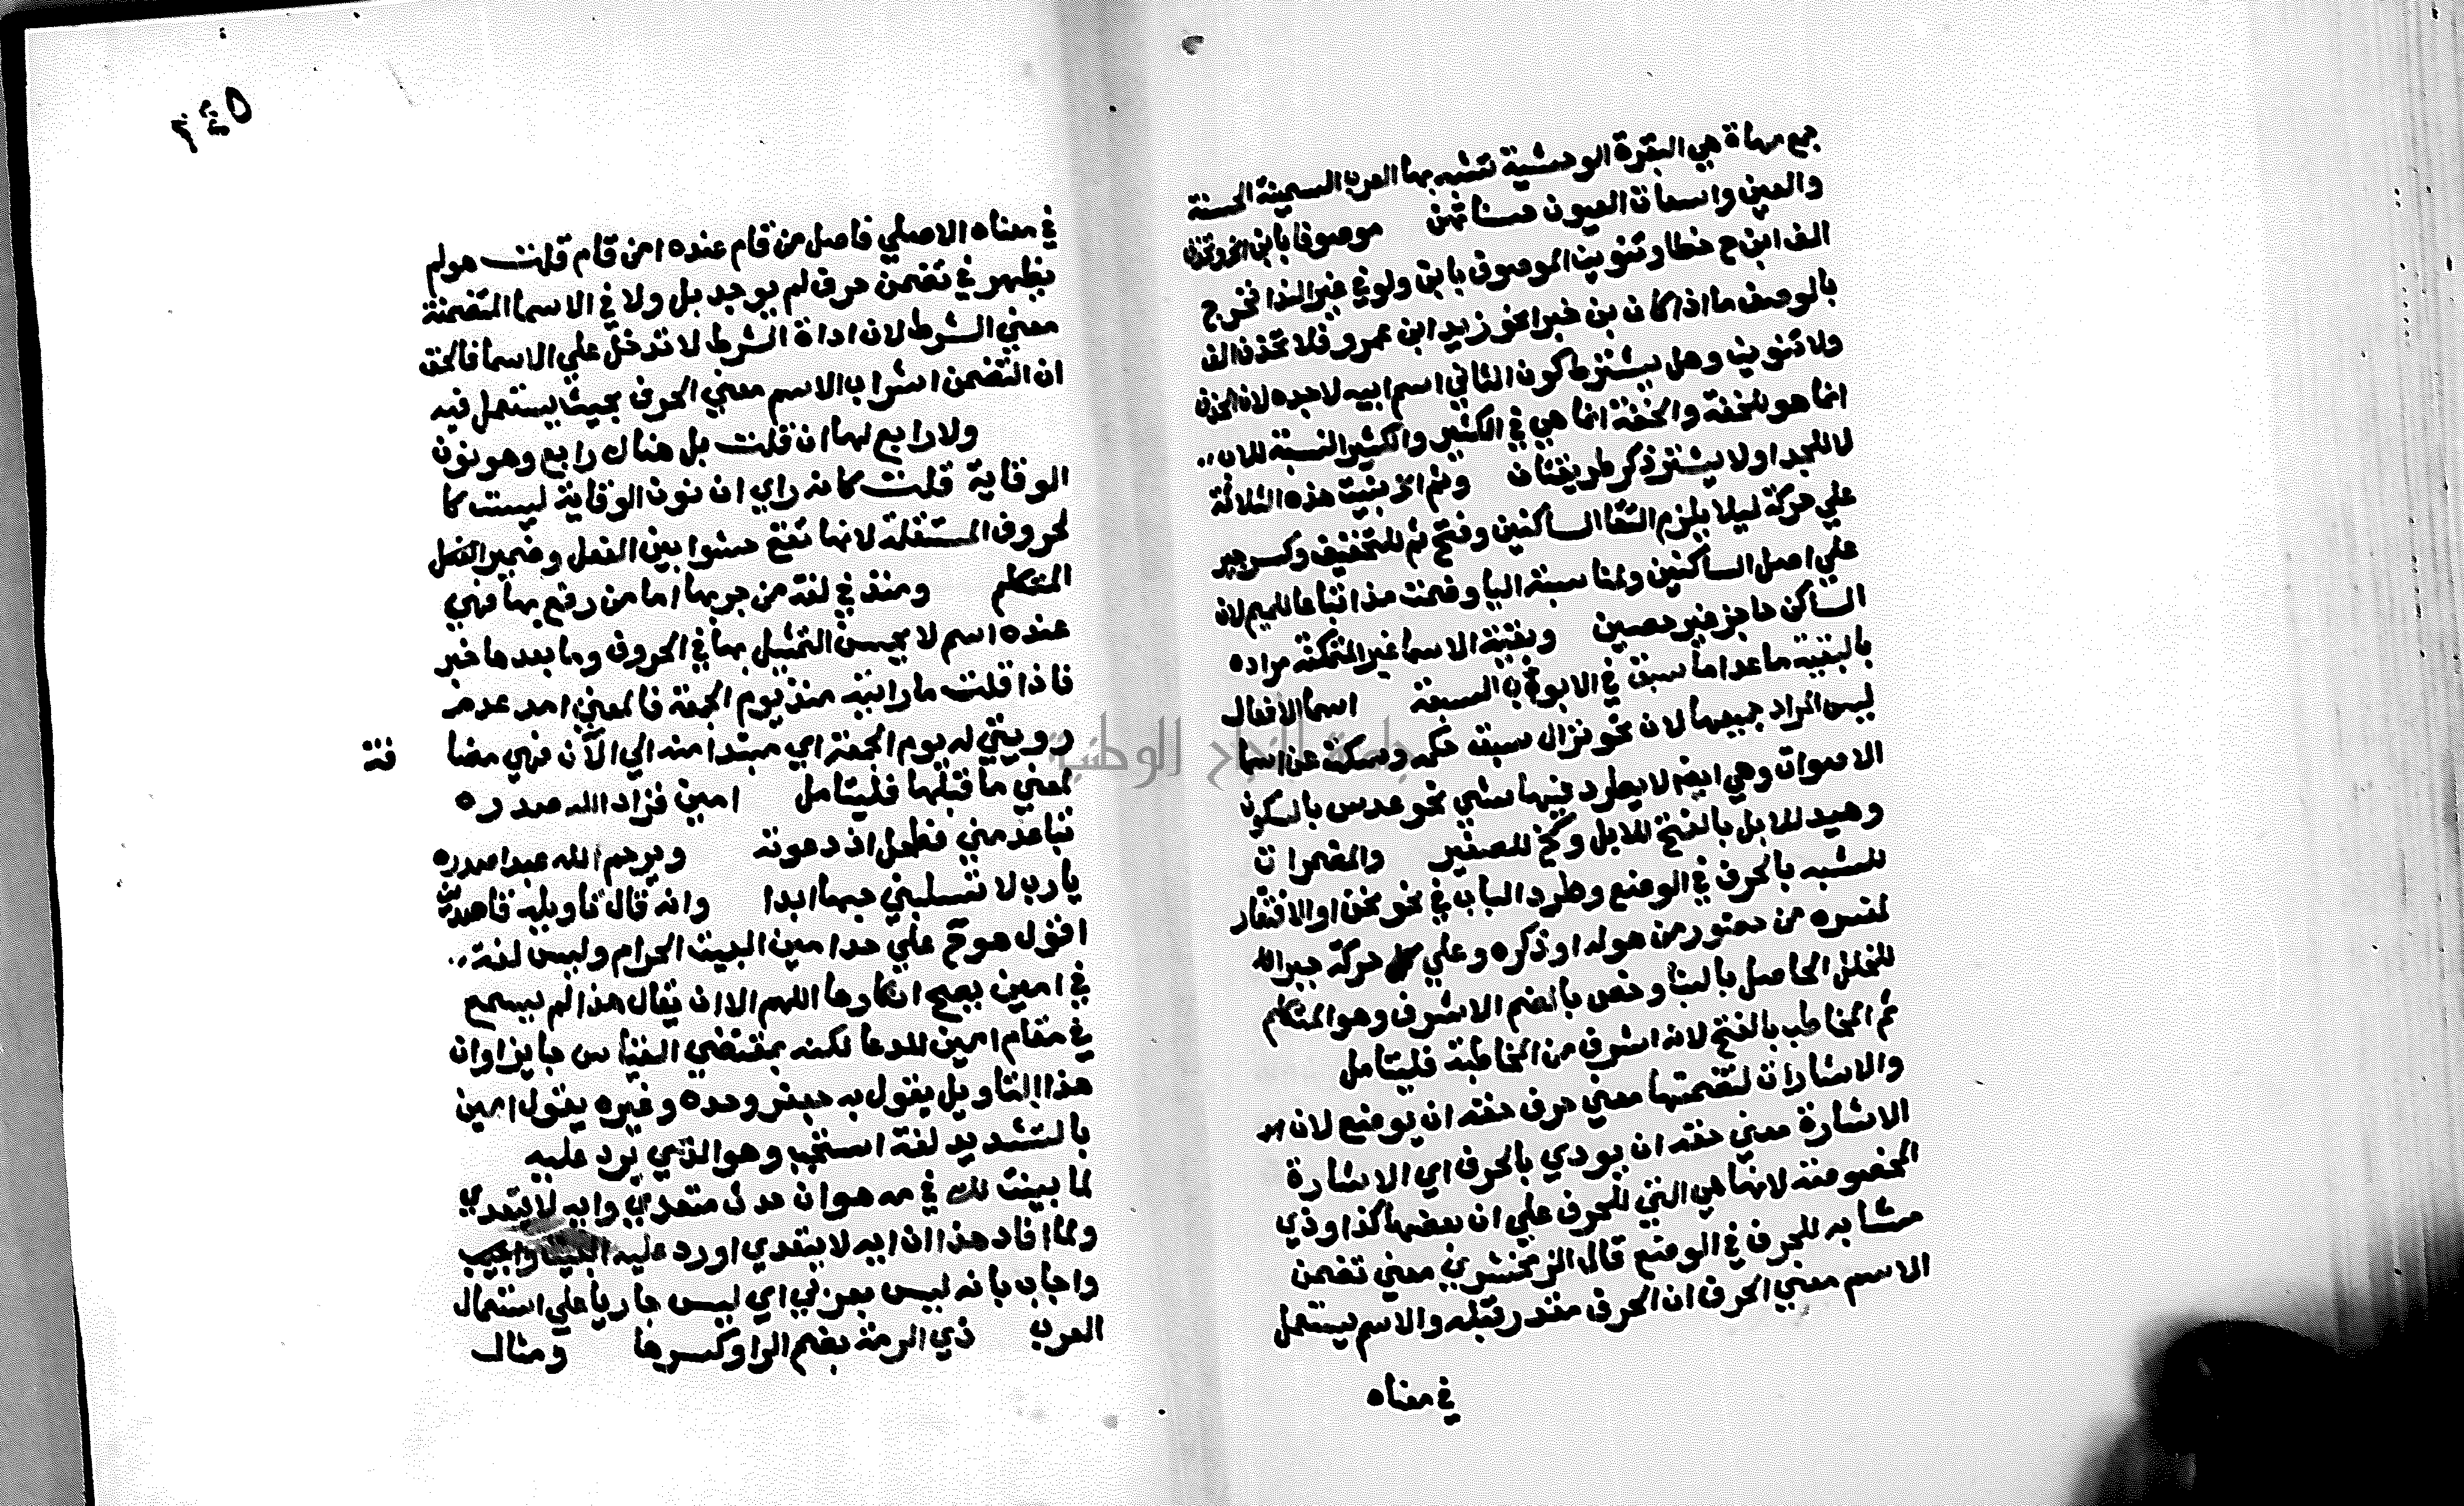 جمع مهاة هي البقرة الوحشية تشبه بها العرب السمينة الحسنة
والعين واسعات العيون حسناتهن موصوفا بابن الخ وتحذف
الف ابن ح خطا وتنوين الموصوف بابن ولو في غير الندا فخرج
بالوصف ما اذا كان بن خبرا نحو زيد ابن عمرو فلا تحذف الف
ولا تنوين وهل يشترط كون الثاني اسم ابيه لا جده لان الحذف
انما هو للخفة والخفة انما هي في الكثير والكثير النسبة للاب
لا للجد اولا يشترط ذكر طريقتان وثم الخ بنيت هذه الثلاثة
علي حركة ليلا يلزم التقا الساكنين وفتح ثم للتخفيف وكسر جير
علي اصل الساكنين ولمناسبة اليا وضمت منذ اتباعا للميم لان
الساكن حاجز غير حصين وبقية الاسما غير المتمكنة مراده
بالبقية ما عدا ما سبق في الابواب السبعة اسما الافعال
ليس المراد جميعها لان نحو نزال سبق حكمه وسكت عن اسما
الاصوات وهي ايضا لا يطرد فيها شي نحو عدس بالسكون
وهيد للابل بالفتح للابل وكخ للصغير والمضمرات
للشبه بالحرف في الوضع وطرد الباب في نحو نحن او الافتقار
لمفسره من حضور من هو له او ذكره وعلي حركة جبرا لل
للخلل الحاصل بالبنا وخص بالضم الاشرف وهو المتكلم
ثم المخاطب بالفتح لانه اشرف من المخاطبة فليتامل
والاشارات لتضمنها معني حرف حقه ان يوضع لان
الاشارة معني حقه ان يودي بالحرف اي الاشارة
المخصوصة لانها هي التي للحرف علي ان بعضها كذا وذي
مشابه للحرف في الوضع قال الزمخشري معني تضمن
الاسم معني الحرف ان الحرف مقدر قبله والاسم يستعمل
في معناه
٢٤٥
في معناه الاصلي فاصل من قام عنده امن قام قلت هو لم
يظهر في تضمن حرف لم يوجد بل ولا في الاسما المتضمنة
معني الشرط لان اداة الشرط لا تدخل علي الاسما فالحق
ان التضمن اشراب الاسم معني الحرف بحيث يستعمل فيه
ولا رابع لهما ان قلت بل هناك رابع وهو نون
الوقاية قلت كانه راي ان نون الوقاية ليست كا
لحروف المستقلة لانها تقع حشوا بين الفعل وضمير الفعل
المتكلم ومنذ في لغة من جر بها اما من رفع بها فهي
عنده اسم لا يحسن التمثيل بها في الحروف وما بعدها خبر
فاذا قلت ما رايته منذ يوم الجمعة فالمعني امد عدم
رويتي له يوم الجمعة اي مبتدا منه الي الآن فهي مضا فة
لمعني ما قبلها فليتامل امين فزاد الله صدره
تباعد مني فطحل اذ دعوته ويرحم الله عبدا صدره
يا رب لا تسلبني حبها ابدا وانه قال تاويله قاصدين
اقول هو ح علي حد امين البيت الحرام وليس لغة
في امين يصح انكارها اللهم الا ان يقال هذا لم يسمع
في مقام امين للدعا لكنه بمقتضي القياس جايز او ان
هذا التاويل يقول به جعفر وحده وغيره يقول امين
بالتشديد لغة استجب وهو الذي يرد عليه
لما بينت لك في مه هو ان حدث متعدي وايه لا يتعدي
ولما افاد هذا ان ايه لا يتعدي اورد عليه البيت واجيب
واجاب بانه ليس بعربي اي ليس جاريا علي استعمال
العرب ذي الرمة بضم الرا وكسرها ومثال